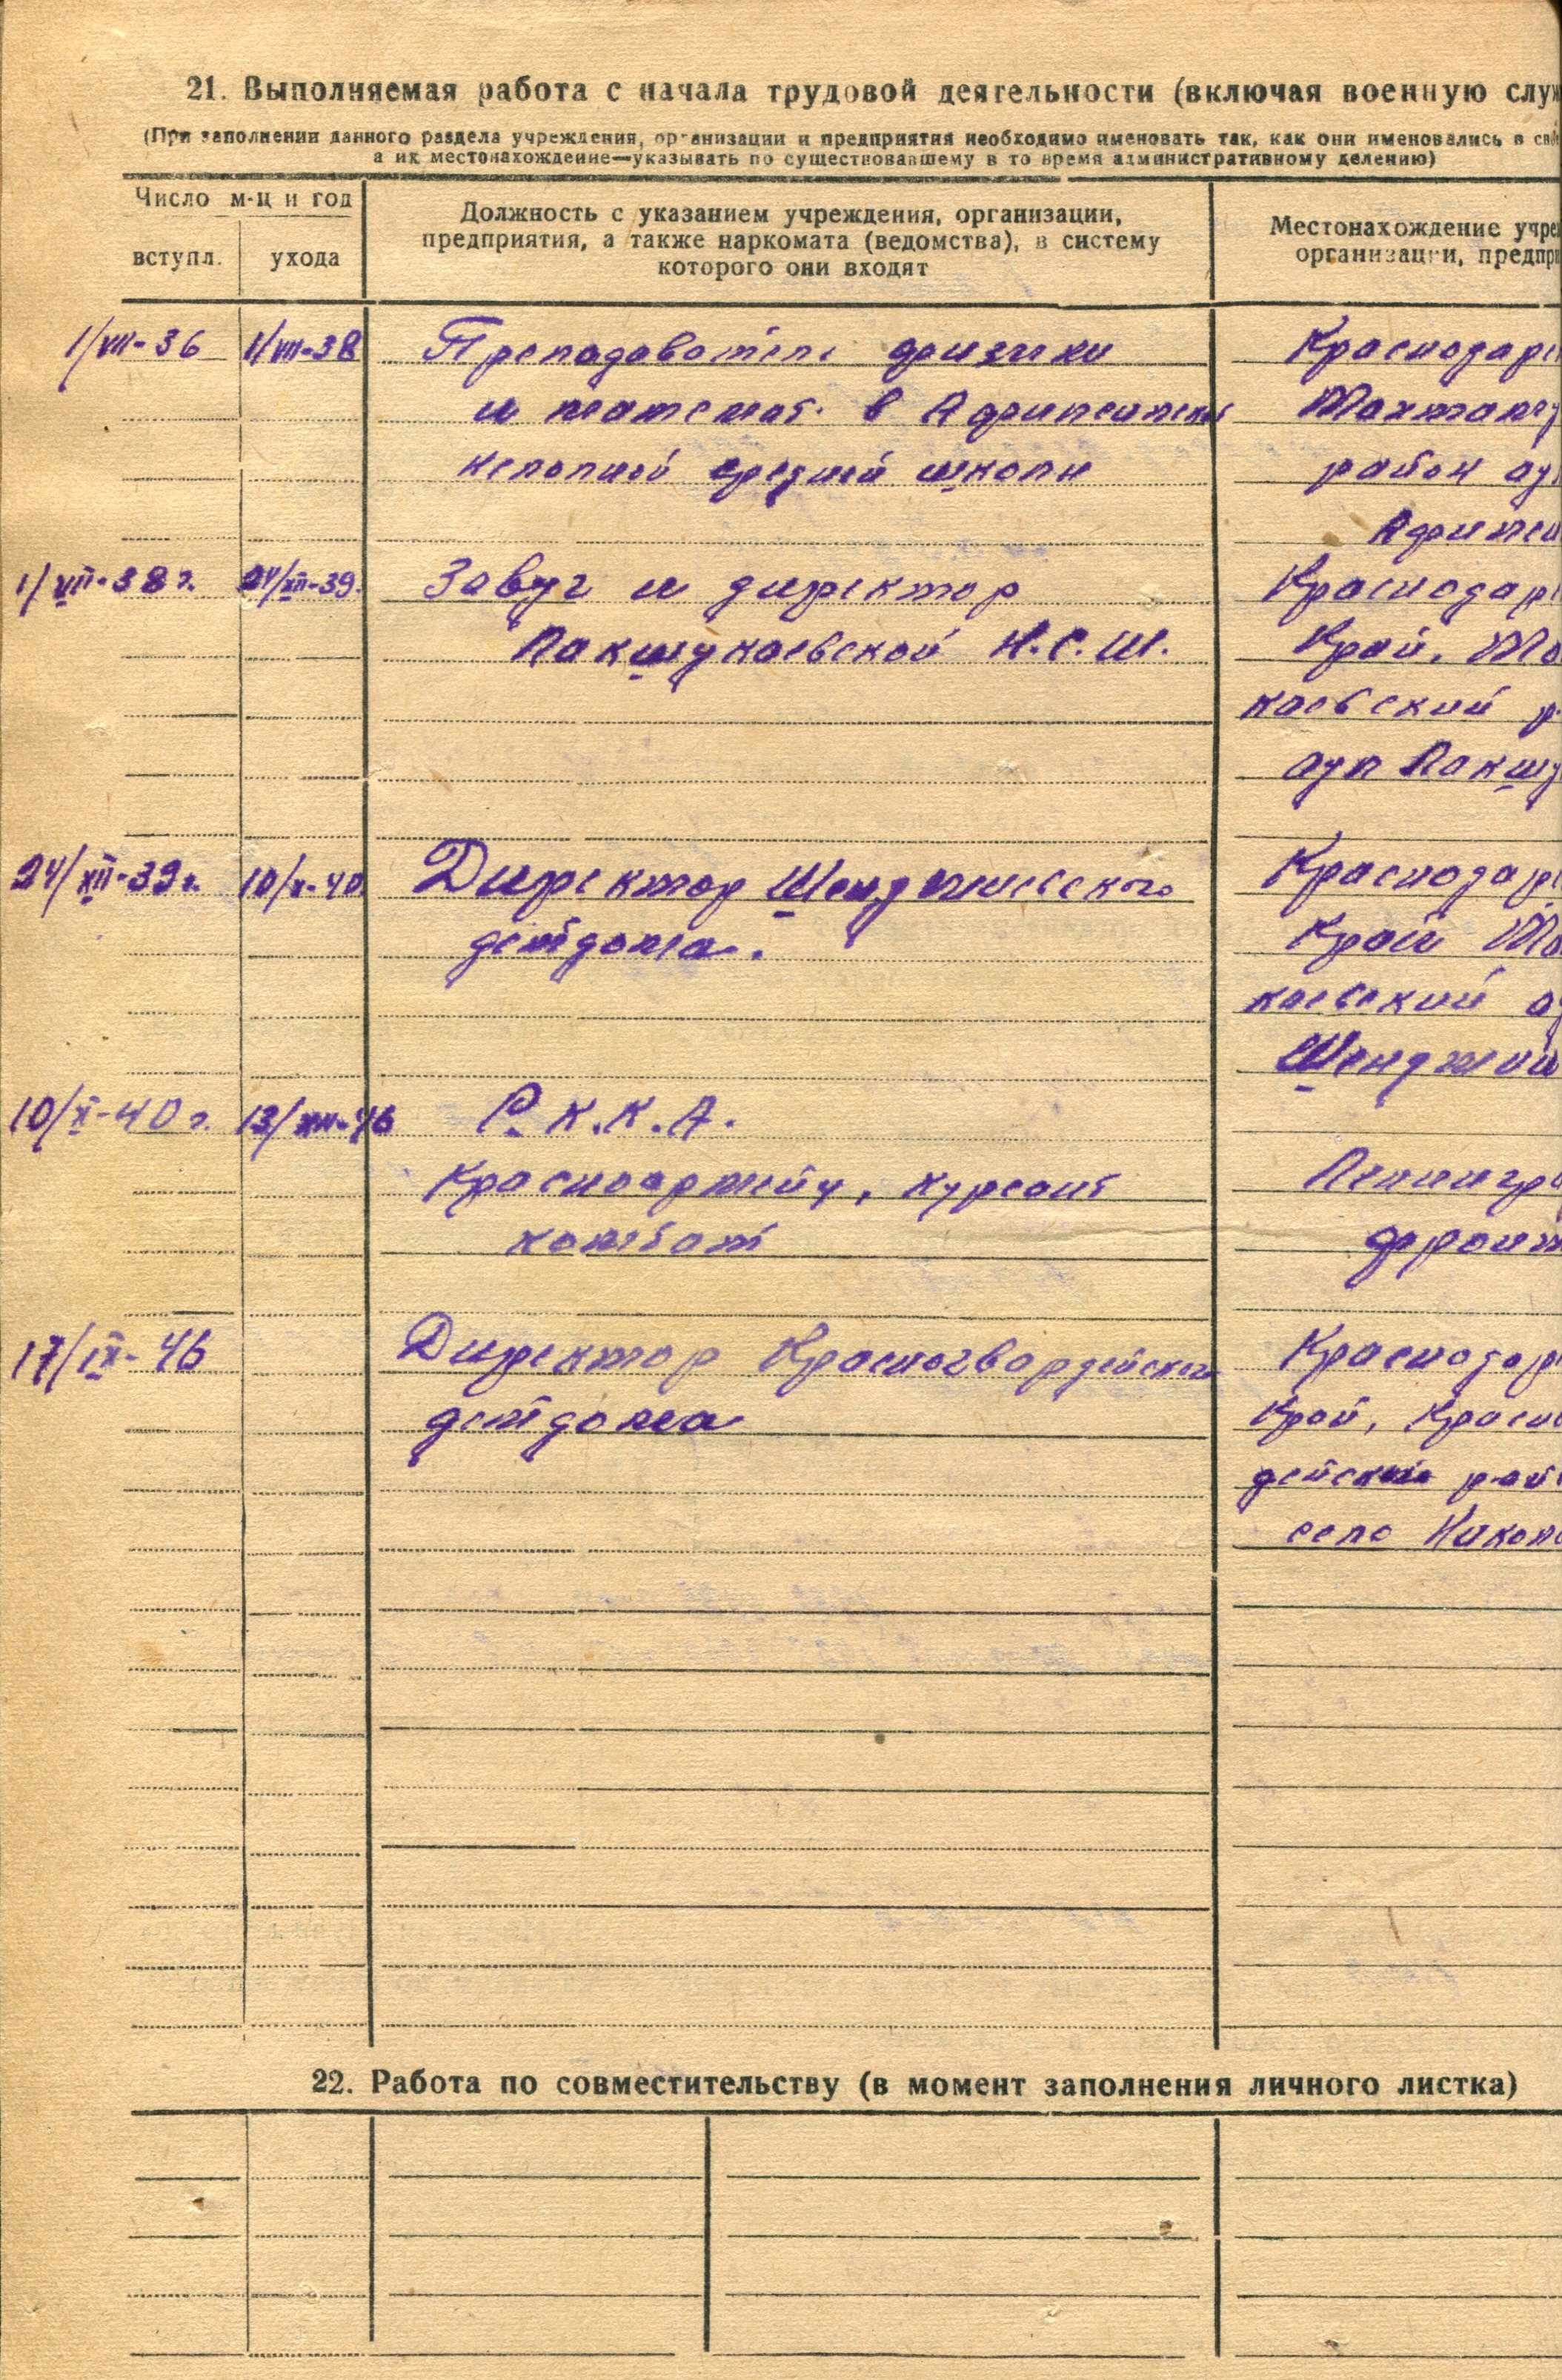 21. Выполняемая работа с начала трудовой деятельности (включая военную служ
(При заполнении данного раздела учреждения, организации и предприятия необходимо именовать так, как они именовались в сво
а их местонахождение—указывать по существовавшему в то время административному делению)
Число м-ц и год
вступл.
ухода
Должность с указанием учреждения, организации,
предприятия, а также наркомата (ведомства), в систему
которого они входят
Местонахождение учре
организации, предпри
1/VII-36 1/VII-38 Преподаватель физики Краснодарс
и математ. в Афипсипской Тахтаму
неполной средней школы район ау
Афипси
1/VII-38 г. 24/XII-39. Завуч и директор Краснодарс
Лакшукаевской Н.С.Ш. Край, Та
каевский р
аул Лакшу
24/XII-39 г. 10/X-40 Директор Шенджийского Краснодар
детдома. Край Та
каевский а
Шенджий
10/X-40 г. 13/VIII-46 Р.К.К.А.
Красноармейц, курсант Ленингра
комбат фронт
17/IX-46 Директор Красногвардейского Краснодар
детдома Край, Красно
дейский рай
село Никол
22. Работа по совместительству (в момент заполнения личного листка)